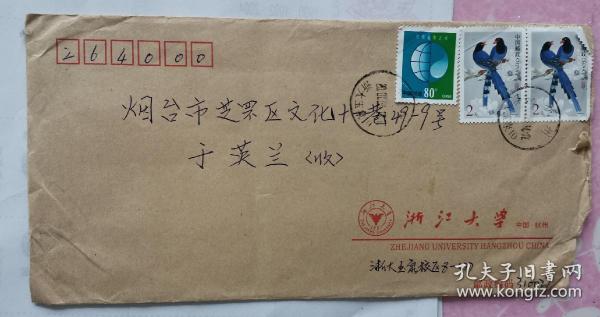 264000
80分
中国邮政
中国邮政
2元
2元
烟台市芝罘区文化十巷49-9号
于英兰(收)
浙江大学 中国 杭州
ZHEJIANG UNIVERSITY HANGZHOU CHINA
浙大玉泉校区8-
孔夫子旧书网
www.kongfz.com